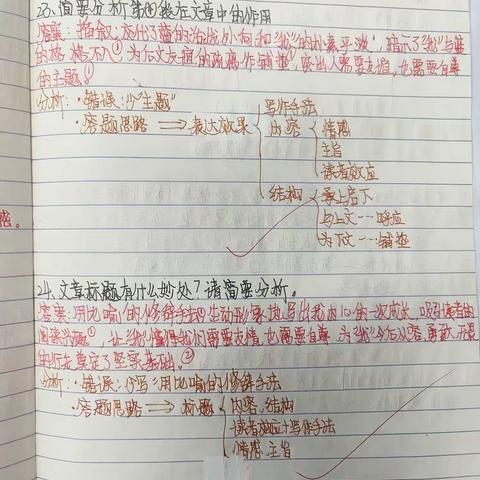 23、简要分析第④段在文章中的作用
答案:描命,放出了蓝的活泼外向和"我"的朴素平淡,暗示了"我"与蓝
的格格不入①为后文友谊的破腐作铺垫,突出人需要友谊,也需要自尊
的主题。
分析:·错误:少"主题"
·答题思路 ⇒ 表达效果
写作手法
内容
情感
主旨
读者效应
结构
承上启下
与上文…呼应
为下文…铺垫
惑。
24、文章标题有什么妙处?请简要分析。
答案:用比喻的修辞手法①生动形象地写出我内心的一次成长,吸引读者的
阅读兴趣①,让"我"懂得我们需要友情,也需要自尊,为"我"今后从容、勇敢、
的行走奠定了坚实基础。②
分析:·错误:少写"用比喻的修辞手法
·答题思路 ⇒ 标题
内容、结构
读者效应+写作手法
情感、主旨